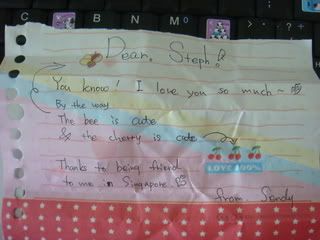 C B N M
Dear. Steph!
You know! I love you so much~
By the way
The bee is cute
& the cherry is cute
LOVE 100%
Thanks to being friend
to me in Singapore.
from Sandy